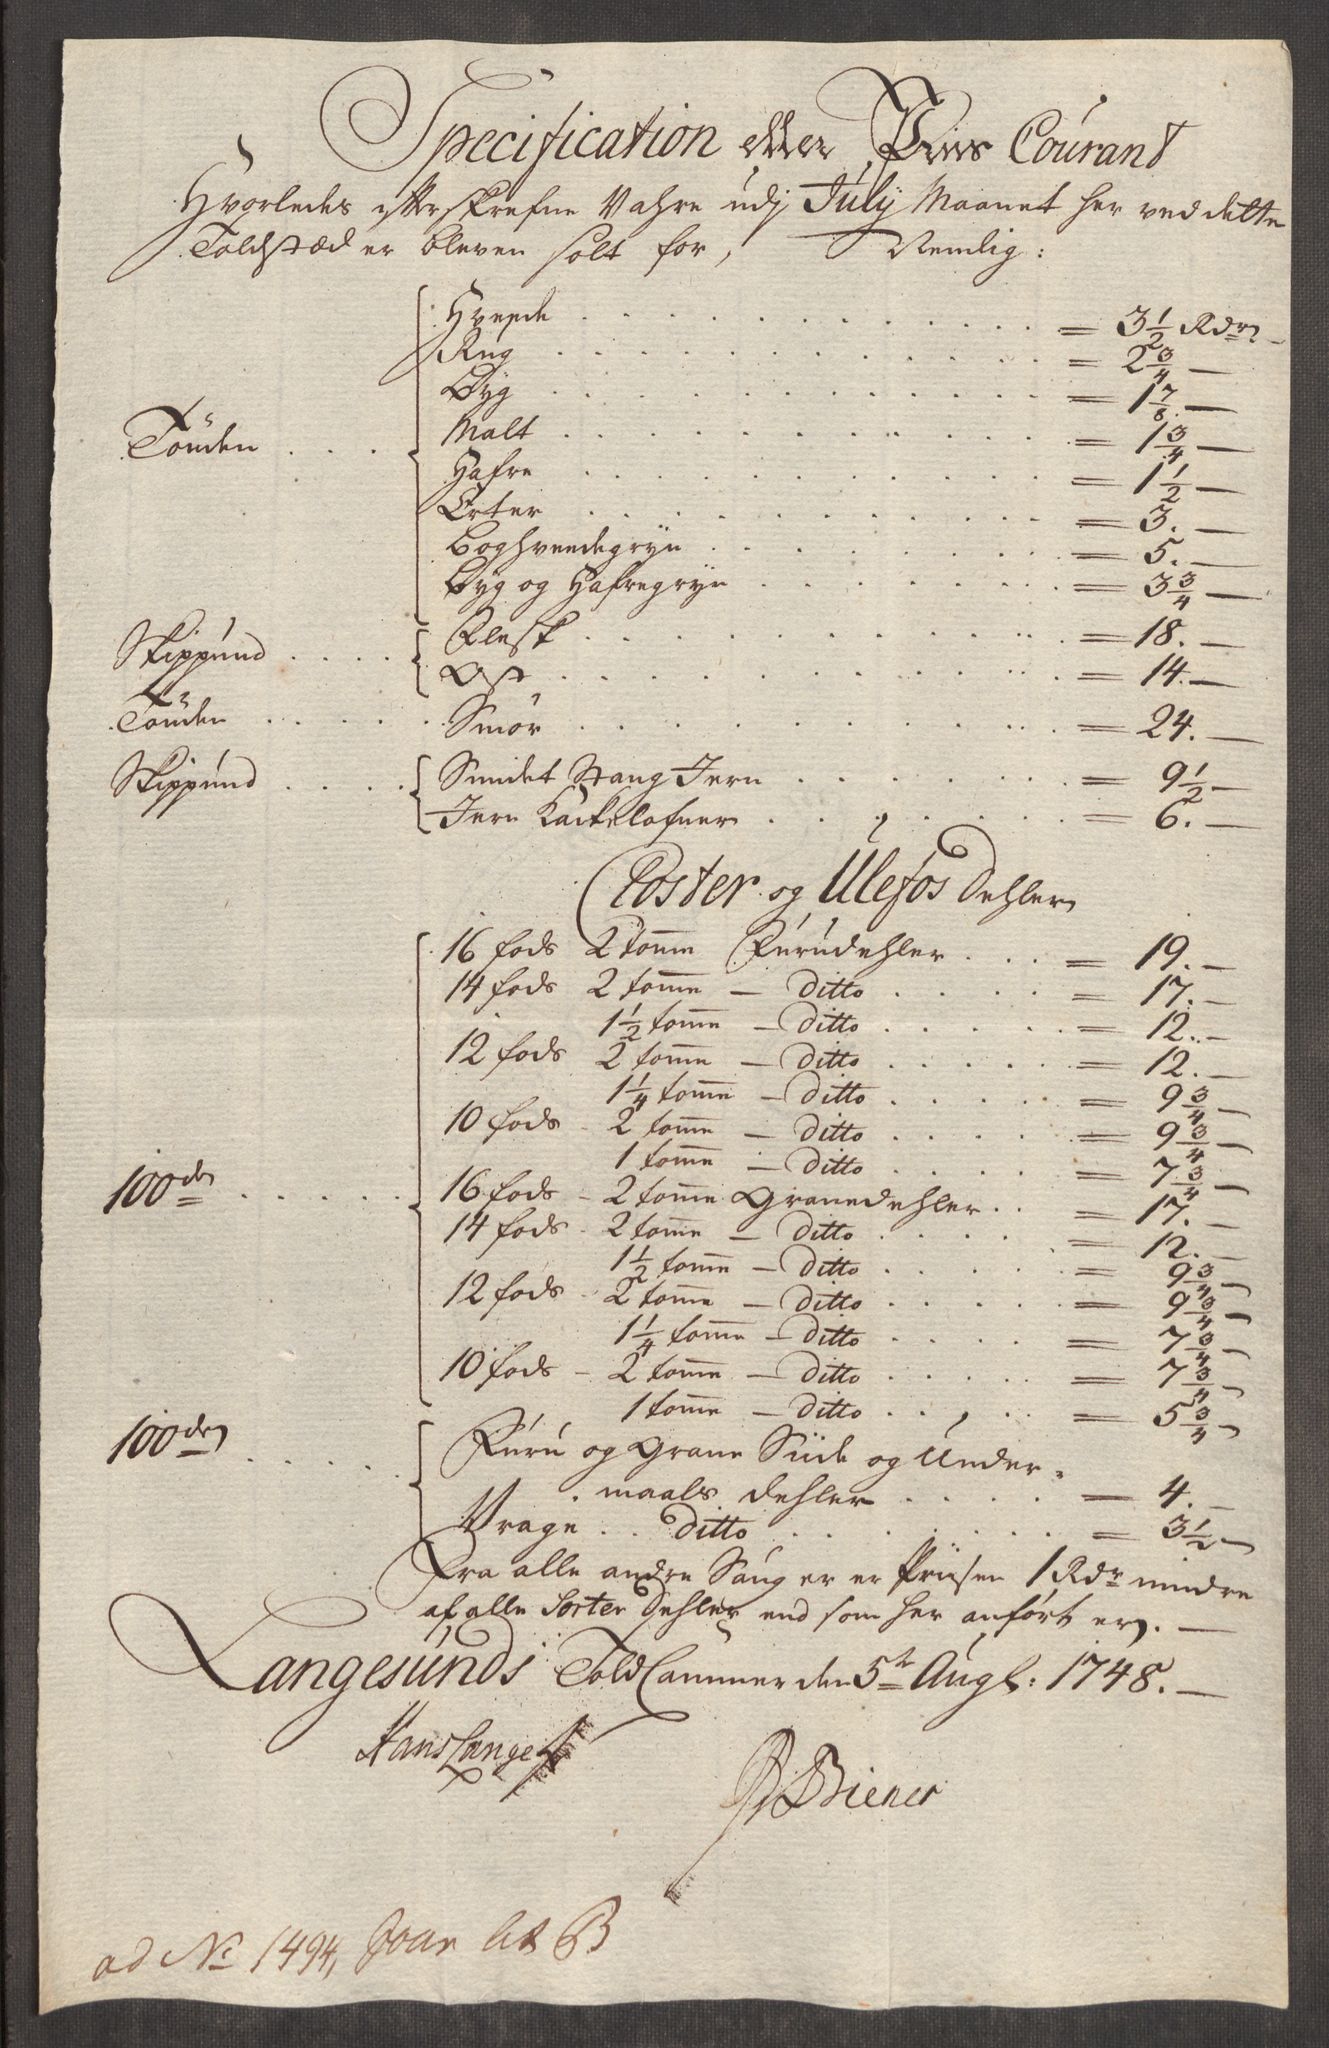 Specification eller Priis Courant
Hvorledes efterskrefne Vahre udj Julij Maanet her ved dette
Toldstæd er bleven solt for, Nemlig:
Tönden . . . Hvede . . . = 3 1/2 Rdr
Rug . . . = 2 3/4 —
Byg . . . = 1 7/8 —
Malt . . . = 1 3/4 —
Hafre . . . = 1 1/2 —
Erter . . . = 3. —
Boghveedegryn . . . = 5. —
Byg og Hafregryn . . . = 3 3/4 —
Skippund . . . Flesk . . . = 18. —
Ost . . . = 14. —
Tönden . . . Smör . . . = 24. —
Skippund . . . Smidet Stang Jern . . . = 9 1/2 —
Jern Kackelofner . . . = 6. —
Closter og Ulefos Dehler
100de . . . 16 fods 2 tomme Furudehler . . . = 19. —
14 fods 2 tomme — Ditto . . . = 17. —
1 1/2 tomme — Ditto . . . = 12. —
12 fods 2 tomme — Ditto . . . = 12. —
1 1/4 tomme — Ditto . . . = 9 3/4 —
10 fods - 2 tomme — Ditto . . . = 9 3/4 —
1 tomme — Ditto . . . = 7 3/4 —
16 fods - 2 tomme Granedehler . . = 17. —
14 fods - 2 tomme — Ditto . . . = 12. —
1 1/2 tomme — Ditto . . . = 9 3/4 —
12 fods - 2 tomme — Ditto . . . = 9 3/4 —
1 1/4 tomme — Ditto . . . = 7 3/4 —
10 fods - 2 tomme — Ditto . . . = 7 3/4 —
1 tomme — Ditto . . . = 5 3/4 —
100de . . . Furu og Grane Siide og Under-
maals Dehler . . . = 4. —
Vrage . . Ditto . . . = 3 1/2 —
Fra alle andre Saug er er Priisen 1 Rdr mindre
af alle Sorter Dehler end som her anfört er. —
Langesunds Told Cammer den 5te Augl: 1748. —
Hans Lange
Biener
ad No 1494, Lit B